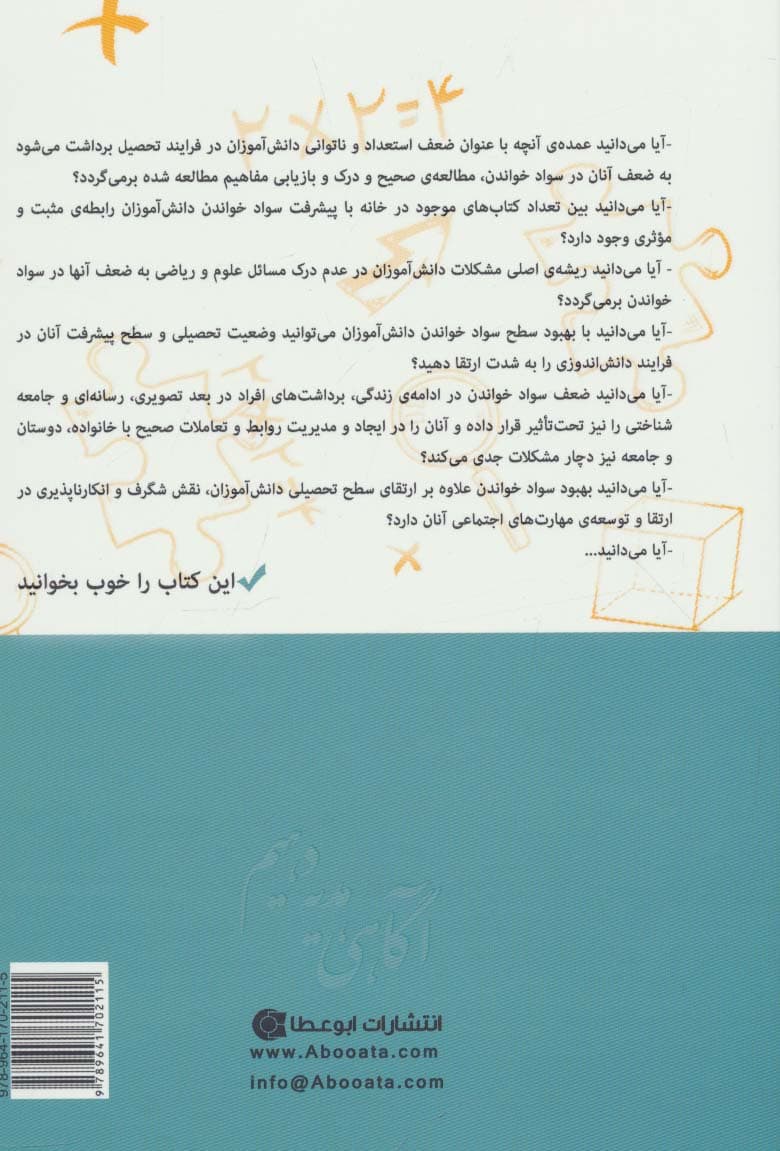 ۲ × ۲ = ۴
-آیا می‌دانید عمده‌ی آنچه با عنوان ضعف استعداد و ناتوانی دانش‌آموزان در فرایند تحصیل برداشت می‌شود
به ضعف آنان در سواد خواندن، مطالعه‌ی صحیح و درک و بازیابی مفاهیم مطالعه شده برمی‌گردد؟
-آیا می‌دانید بین تعداد کتاب‌های موجود در خانه با پیشرفت سواد خواندن دانش‌آموزان رابطه‌ی مثبت و
مؤثری وجود دارد؟
- آیا می‌دانید ریشه‌ی اصلی مشکلات دانش‌آموزان در عدم درک مسائل علوم و ریاضی به ضعف آنها در سواد
خواندن برمی‌گردد؟
-آیا می‌دانید با بهبود سطح سواد خواندن دانش‌آموزان می‌توانید وضعیت تحصیلی و سطح پیشرفت آنان در
فرایند دانش‌اندوزی را به شدت ارتقا دهید؟
-آیا می‌دانید ضعف سواد خواندن در ادامه‌ی زندگی، برداشت‌های افراد در بعد تصویری، رسانه‌ای و جامعه
شناختی را نیز تحت‌تأثیر قرار داده و آنان را در ایجاد و مدیریت روابط و تعاملات صحیح با خانواده، دوستان
و جامعه نیز دچار مشکلات جدی می‌کند؟
-آیا می‌دانید بهبود سواد خواندن علاوه بر ارتقای سطح تحصیلی دانش‌آموزان، نقش شگرف و انکارناپذیری در
ارتقا و توسعه‌ی مهارت‌های اجتماعی آنان دارد؟
-آیا می‌دانید...
این کتاب را خوب بخوانید
آگاهی هدیه دهیم
انتشارات ابوعطا
www.Abooata.com
info@Abooata.com
978-964-170-211-5
9789641702115